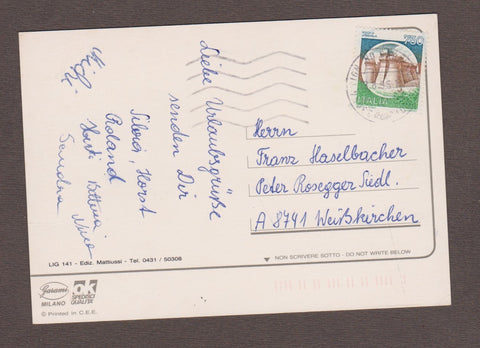 Liebe Urlaubsgrüße
senden Dir
Silvia, Horst
Roland
Bettina
Sandra Nina
750
ITALIA
Herrn
Franz Haselbacher
Peter Rosegger Siedl.
A 8741 Weißkirchen
LIG 141 - Ediz. Mattiussi - Tel. 0431 / 50308
▼ NON SCRIVERE SOTTO - DO NOT WRITE BELOW
Garami
MILANO
OK
© Printed in C.E.E.